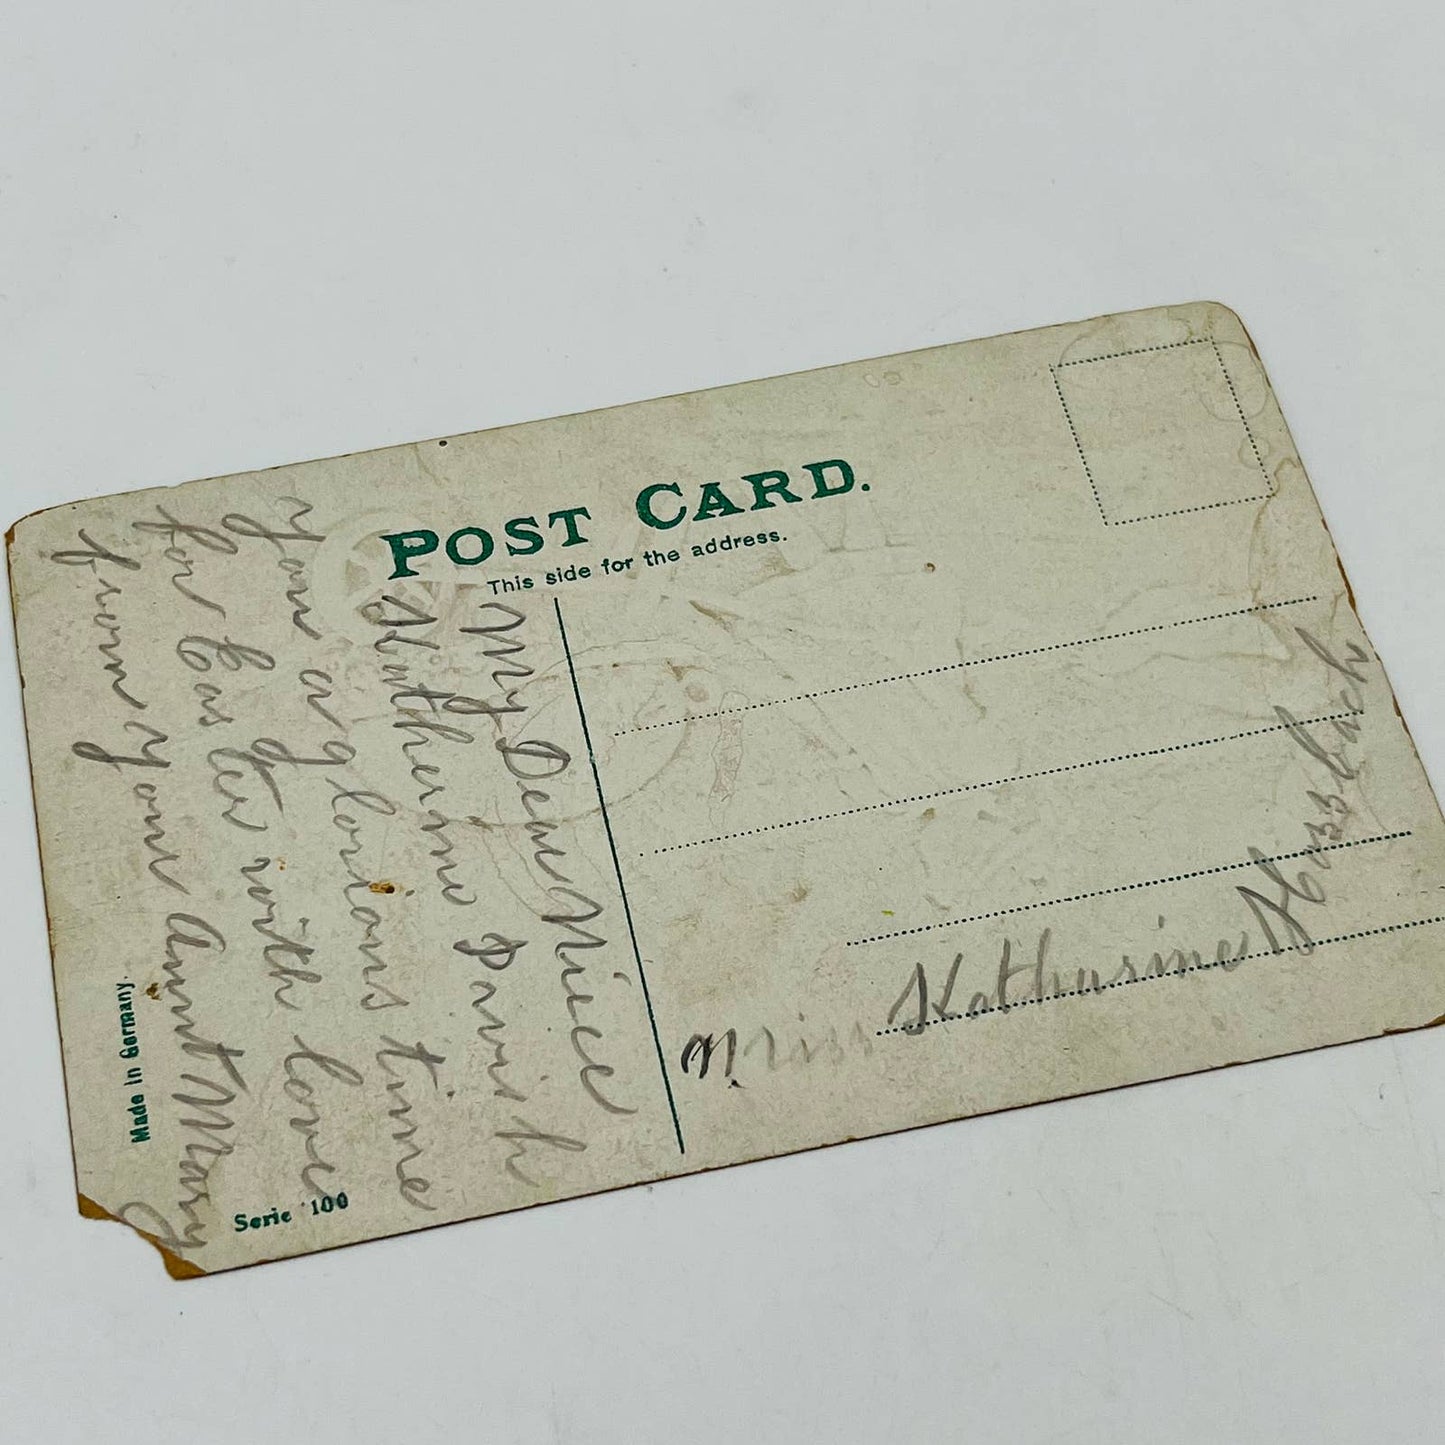 POST CARD.
This side for the address.
My Dear Niece
Katherine I wish
you a glorious time
for Easter with love
from your Aunt Mary
Miss Katharine
Made in Germany.
Serie 100